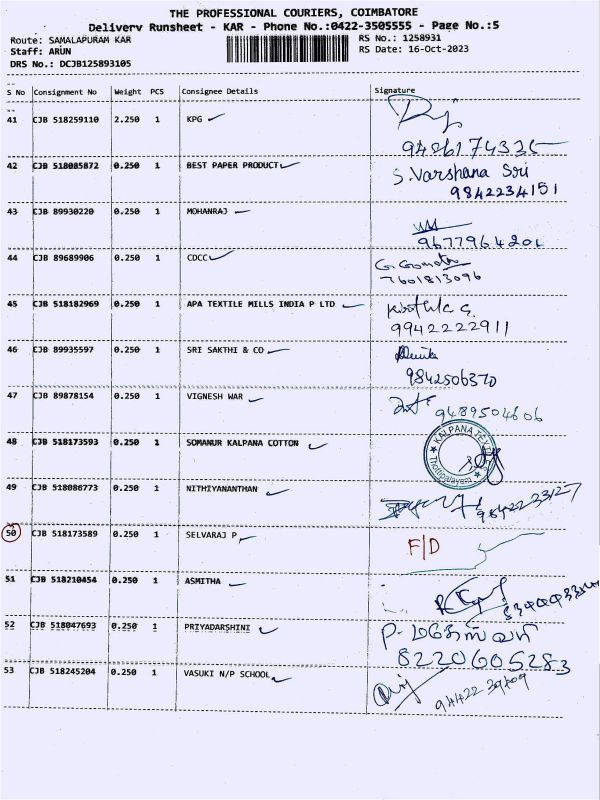 THE PROFESSIONAL COURIERS, COIMBATORE
Delivery Runsheet - KAR - Phone No.:0422-3505555 - Page No.:5
Route: SAMALAPURAM KAR
RS No.: 1258931
Staff: ARUN
RS Date: 16-Oct-2023
DRS No.: DCJB125893105
S No Consignment No Weight PCS Consignee Details Signature
41 CJB 518259110 2.250 1 KPG
9486174335
42 CJB 518085872 0.250 1 BEST PAPER PRODUCT S.Varshana Sri
9842234151
43 CJB 89930220 0.250 1 MOHANRAJ
9677964201
44 CJB 89689906 0.250 1 CDCC
7601813096
45 CJB 518182969 0.250 1 APA TEXTILE MILLS INDIA P LTD
9942222911
46 CJB 89935597 0.250 1 SRI SAKTHI & CO
9842506370
47 CJB 89878154 0.250 1 VIGNESH WAR
9489504606
48 CJB 518173593 0.250 1 SOMANUR KALPANA COTTON
KALPANA TEX
49 CJB 518086773 0.250 1 NITHIYANANTHAN
9842233127
50 CJB 518173589 0.250 1 SELVARAJ P F/D
51 CJB 518210454 0.250 1 ASMITHA
52 CJB 518047693 0.250 1 PRIYADARSHINI P. மகேஸ்வரி
8220605283
53 CJB 518245204 0.250 1 VASUKI N/P SCHOOL